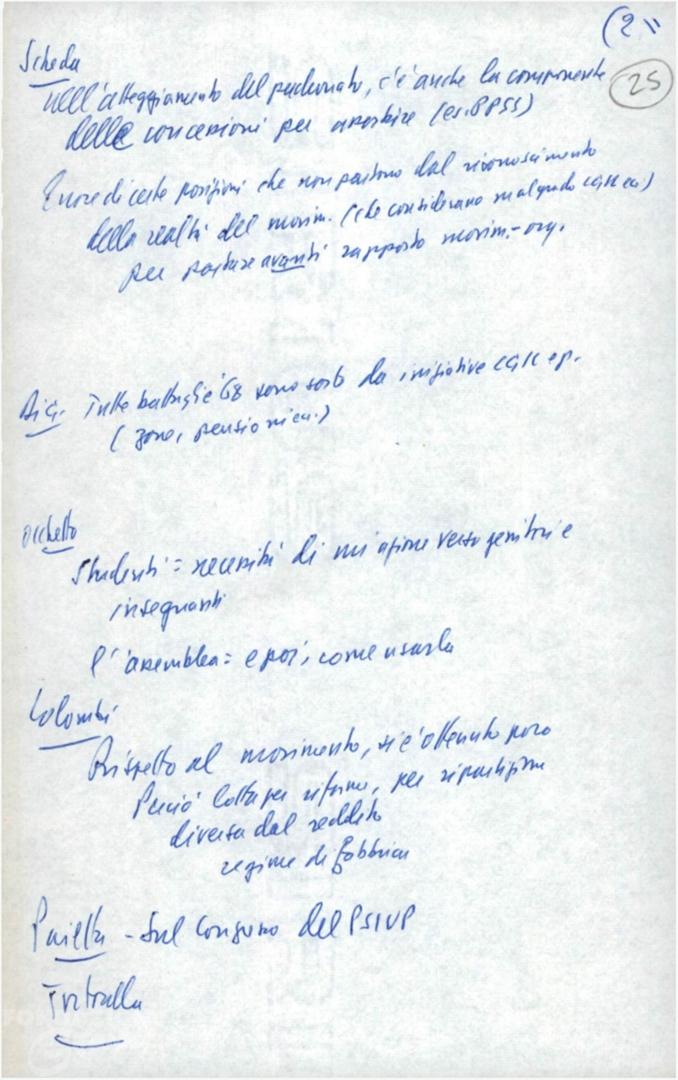 (2"
25
Scheda
nell'atteggiamento del padronato, c'è anche la componente
delle concezioni per assorbire (es. PPSS)
Errore di certe posizioni che non partono dal riconoscimento
della realtà del movim. (che considerano malgrado CGIL ecc.)
per portare avanti rapporto movim.-org.
Tutte battaglie 68 sono sorte da iniziative CGIL e p.
(zone, pensioni ecc.)
Occhetto
Studenti = necessità di un'azione verso genitori e
insegnanti
l'assemblea = e poi, come usarla
Colombi
Rispetto al movimento, si è ottenuto poco
Perciò lotta per riforme, per ripartizione
diversa del reddito
regime di fabbrica
Pajetta - sul congresso del PSIUP